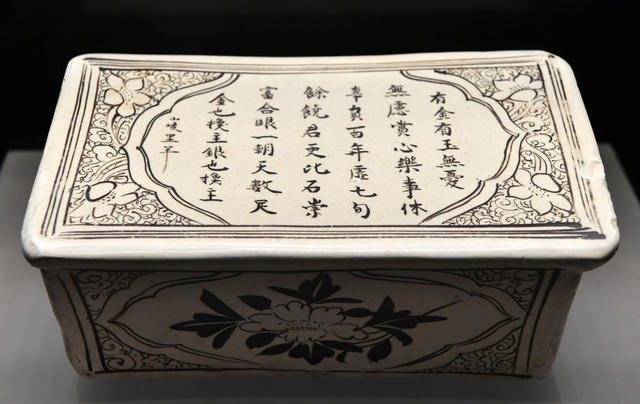 有金有玉無憂
無慮賞心樂事休
辜負百年虛七旬
餘饒君更比石崇
富合眼一朝天數尽
金也換主銀也換主
山坡里羊